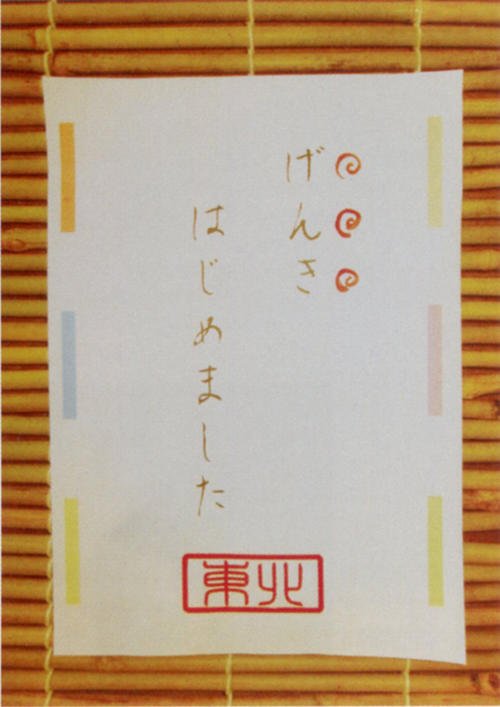 げんき
はじめました
東北